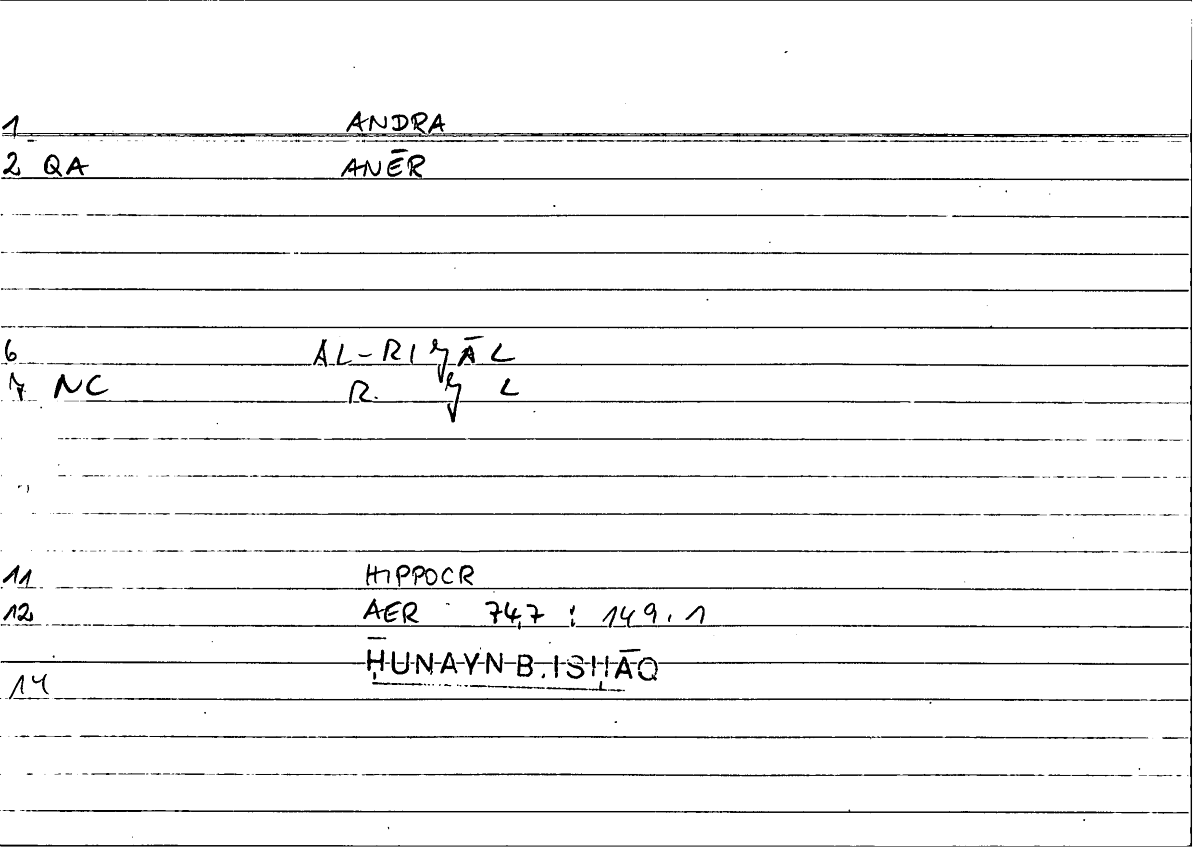 1 ANDRA
2 QA ANĒR
6 AL-RIǦĀL
7 NC R Ǧ L
11 HIPPOCR
12 AER 74,7 : 149.1
ḤUNAYN B. ISḤĀQ
14